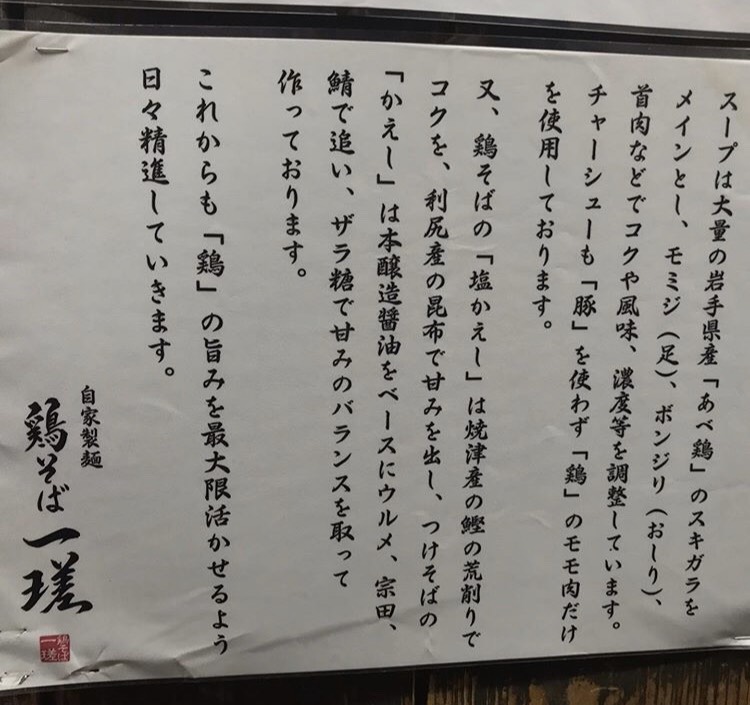 スープは大量の岩手県産「あべ鶏」のスキガラを
メインとし、モミジ（足）、ボンジリ（おしり）、
首肉などでコクや風味、濃度等を調整しています。
チャーシューも「豚」を使わず「鶏」のモモ肉だけ
を使用しております。
又、鶏そばの「塩かえし」は焼津産の鰹の荒削りで
コクを、利尻産の昆布で甘みを出し、つけそばの
「かえし」は本醸造醤油をベースにウルメ、宗田、
鯖で追い、ザラ糖で甘みのバランスを取って
作っております。
これからも「鶏」の旨みを最大限活かせるよう
日々精進していきます。
自家製麺
鶏そば一瑳
鶏そば
一瑳